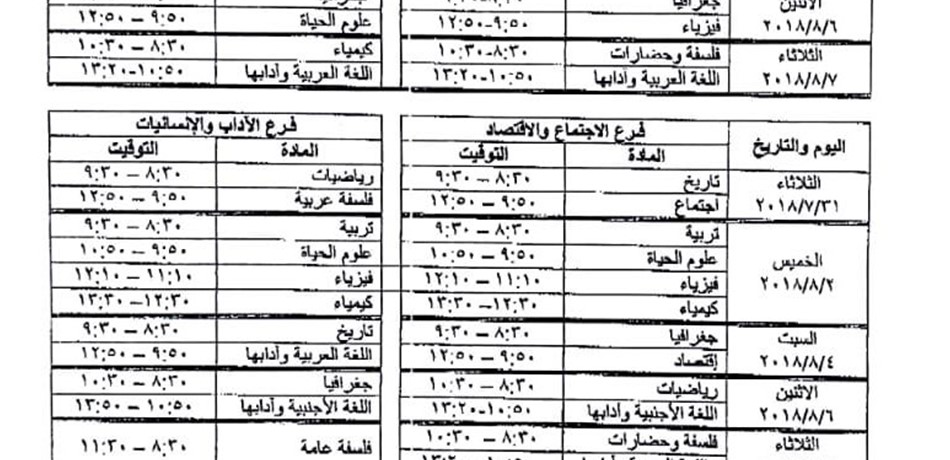 الاثنين جغرافيا
٢٠١٨/٨/٦ فيزياء ٩:٥٠-١٢:٥٠ علوم الحياة ٩:٥٠ – ١٢:٥٠
الثلاثاء فلسفة وحضارات ٨:٣٠-١٠:٣٠ كيمياء ٨:٣٠ – ١٠:٣٠
٢٠١٨/٨/٧ اللغة العربية وآدابها ١٠:٥٠-١٣:٢٠ اللغة العربية وآدابها ١٠:٥٠-١٣:٢٠
اليوم والتاريخ فرع الاجتماع والاقتصاد فرع الآداب والإنسانيات
المادة التوقيت المادة التوقيت
الثلاثاء تاريخ ٨:٣٠ – ٩:٣٠ رياضيات ٨:٣٠ – ٩:٣٠
٢٠١٨/٧/٣١ اجتماع ٩:٥٠ – ١٢:٥٠ فلسفة عربية ٩:٥٠ – ١٢:٥٠
الخميس تربية ٨:٣٠ – ٩:٣٠ تربية ٨:٣٠ – ٩:٣٠
٢٠١٨/٨/٢ علوم الحياة ٩:٥٠ – ١٠:٥٠ علوم الحياة ٩:٥٠ – ١٠:٥٠
فيزياء ١١:١٠ – ١٢:١٠ فيزياء ١١:١٠ – ١٢:١٠
كيمياء ١٢:٣٠ – ١٣:٣٠ كيمياء ١٢:٣٠ – ١٣:٣٠
السبت جغرافيا ٨:٣٠ – ٩:٣٠ تاريخ ٨:٣٠ – ٩:٣٠
٢٠١٨/٨/٤ إقتصاد ٩:٥٠ – ١٢:٥٠ اللغة العربية وآدابها ٩:٥٠ – ١٢:٥٠
الاثنين رياضيات ٨:٣٠ – ١٠:٣٠ جغرافيا ٨:٣٠ – ١٠:٣٠
٢٠١٨/٨/٦ اللغة الأجنبية وآدابها ١٠:٥٠-١٣:٢٠ اللغة الأجنبية وآدابها ١٠:٥٠ – ١٣:٥٠
الثلاثاء فلسفة وحضارات ٨:٣٠ – ١٠:٣٠ فلسفة عامة ٨:٣٠ – ١١:٣٠